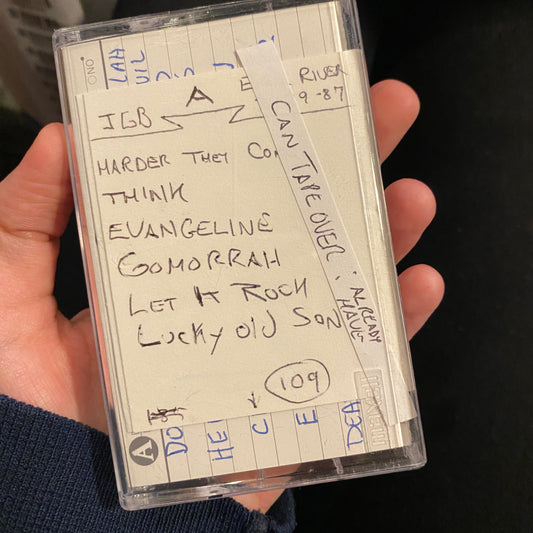 JGB A E RIVER
9-87
HARDER THEY CO
THINK
EVANGELINE
GOMORRAH
LET IT ROCK
LUCKY OLD SON
109
CAN TAPE OVER: ALREADY
HAVE
A
DO
HE
C
E
DEA
LAH